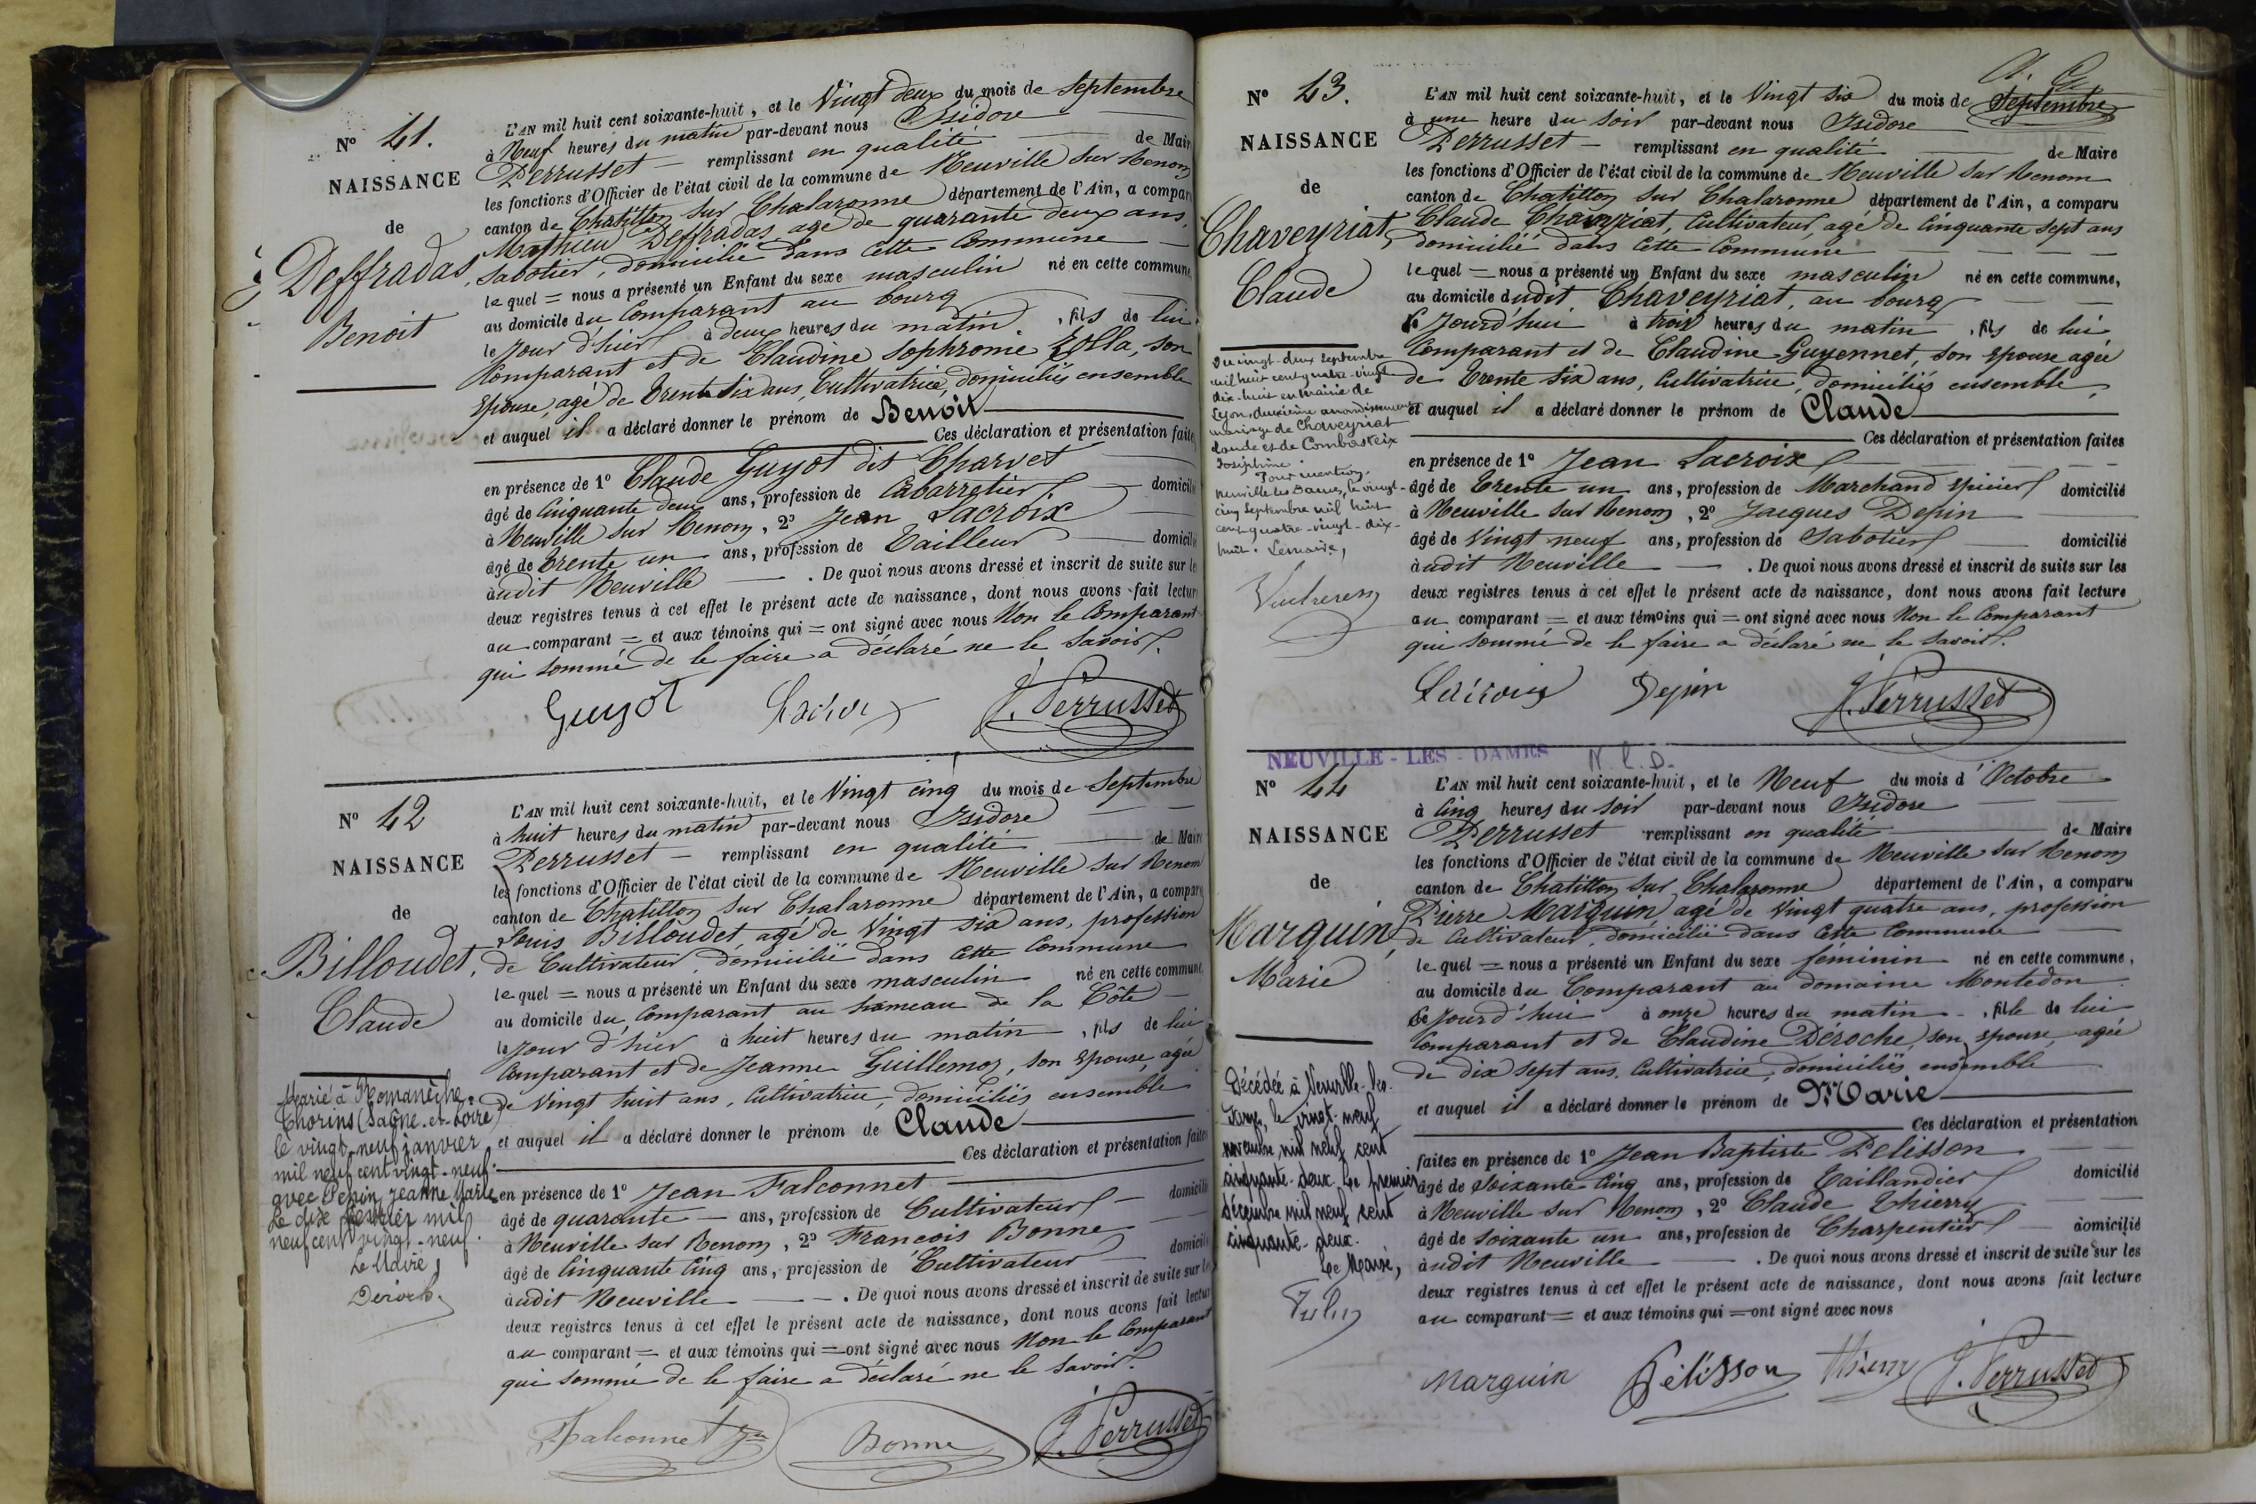 N° 41.
NAISSANCE
de
Deffradas,
Benoit
L'AN mil huit cent soixante-huit, et le Vingt deux du mois de Septembre
à Neuf heures du matin par-devant nous Isidore
Perrusset — remplissant en qualité de Maire
les fonctions d'Officier de l'état civil de la commune de Neuville sur Renom
canton de Chatillon sur Chalaronne département de l'Ain, a comparu
Mathieu Deffradas agé de quarante deux ans,
Sabotier, domicilié dans cette Commune —
lequel = nous a présenté un Enfant du sexe masculin né en cette commune,
au domicile du Comparant au bourg
le jour d'hier à deux heures du matin, fils de lui
Comparant et de Claudine Sophronie Zolla, son
Epouse, agé de Trente six ans, Cultivatrice, domiciliés ensemble
et auquel il a déclaré donner le prénom de Benoit
Ces déclaration et présentation faites
en présence de 1° Claude Guyot dit Charvet
âgé de Cinquante deux ans, profession de Cabarretier domicilié
à Neuville sur Renom, 2° Jean Lacroix
âgé de Trente un ans, profession de Tailleur domicilié
audit Neuville — . De quoi nous avons dressé et inscrit de suite sur les
deux registres tenus à cet effet le présent acte de naissance, dont nous avons fait lecture
au comparant = et aux témoins qui = ont signé avec nous Non le Comparant
qui sommé de le faire a déclaré ne le savoir.
Guyot Lacroix J. Perrusset
N° 42
NAISSANCE
de
Billoudet,
Claude
Marié à Romanèche-
Thorins (Saône-et-Loire)
le vingt-neuf janvier
mil neuf cent vingt-neuf.
avec Pépin Jeanne Marie
Le dix février mil
neuf cent vingt-neuf.
Le Maire,
L'AN mil huit cent soixante-huit, et le Vingt cinq du mois de Septembre
à huit heures du matin par-devant nous Isidore
Perrusset — remplissant en qualité de Maire
les fonctions d'Officier de l'état civil de la commune de Neuville sur Renom
canton de Chatillon sur Chalaronne département de l'Ain, a comparu
Louis Billoudet, agé de Vingt six ans, profession
de Cultivateur, domicilié dans cette Commune
lequel = nous a présenté un Enfant du sexe masculin né en cette commune,
au domicile du Comparant au hameau de la Côte —
le jour d'hier à huit heures du matin, fils de lui
Comparant et de Jeanne Guillemoz, son Epouse, agée
de Vingt huit ans, Cultivatrice, domiciliés ensemble
et auquel il a déclaré donner le prénom de Claude
Ces déclaration et présentation faites
en présence de 1° Jean Falconnet
âgé de quarante — ans, profession de Cultivateur — domicilié
à Neuville sur Renom, 2° Francois Bonne
âgé de Cinquante Cinq ans, profession de Cultivateur domicilié
audit Neuville — . De quoi nous avons dressé et inscrit de suite sur les
deux registres tenus à cet effet le présent acte de naissance, dont nous avons fait lecture
au comparant = et aux témoins qui = ont signé avec nous Non le Comparant
qui sommé de le faire a déclaré ne le savoir.
Falconnet Bonne J. Perrusset
N° 43.
NAISSANCE
de
Chaveyriat,
Claude
Du vingt-deux septembre
mil huit cent quatre-vingt
dix-huit en mairie de
Lyon, deuxième arrondissement
mariage de Chaveyriat
Claude et de Combasteix
Joséphine.
Pour mention.
Neuville les Dames, le vingt-
cinq septembre mil huit
cent quatre-vingt-dix-
huit. Le maire,
L'AN mil huit cent soixante-huit, et le Vingt Six du mois de Septembre
à une heure du soir par-devant nous Isidore
Perrusset — remplissant en qualité de Maire
les fonctions d'Officier de l'état civil de la commune de Neuville sur Renom
canton de Chatillon sur Chalaronne département de l'Ain, a comparu
Claude Chaveyriat, Cultivateur, agé de Cinquante sept ans
domicilié dans cette Commune
lequel = nous a présenté un Enfant du sexe masculin né en cette commune,
au domicile dudit Chaveyriat, au bourg
ce jourd'hui à trois heures du matin, fils de lui
Comparant et de Claudine Guyennet, son Epouse agée
de Trente six ans, Cultivatrice, domiciliés ensemble
et auquel il a déclaré donner le prénom de Claude
Ces déclaration et présentation faites
en présence de 1° Jean Lacroix
âgé de Trente un ans, profession de Marchand Epicier domicilié
à Neuville sur Renom, 2° Jacques Depin
âgé de Vingt neuf ans, profession de Sabotier domicilié
audit Neuville — . De quoi nous avons dressé et inscrit de suite sur les
deux registres tenus à cet effet le présent acte de naissance, dont nous avons fait lecture
au comparant = et aux témoins qui = ont signé avec nous Non le Comparant
qui sommé de le faire a déclaré ne le savoir.
Lacroix Depin J. Perrusset
NEUVILLE-LES-DAMES N.L.D.
N° 44
NAISSANCE
de
Marguin,
Marie
Décédée à Neuville-les-
Dames, le vingt-neuf
novembre mil neuf cent
cinquante-deux. Le premier
décembre mil neuf cent
cinquante-deux.
Le Maire,
L'AN mil huit cent soixante-huit, et le Neuf du mois d'Octobre
à Cinq heures du soir par-devant nous Isidore
Perrusset remplissant en qualité de Maire
les fonctions d'Officier de l'état civil de la commune de Neuville sur Renom
canton de Chatillon sur Chalaronne département de l'Ain, a comparu
Pierre Marguin, agé de Vingt quatre ans, profession
de Cultivateur, domicilié dans cette Commune
lequel = nous a présenté un Enfant du sexe féminin né en cette commune,
au domicile du Comparant au domaine Montedon
ce jourd'hui à onze heures du matin, fille de lui
Comparant et de Claudine Déroche, son Epouse, agée
de dix sept ans, Cultivatrice, domiciliés ensemble
et auquel il a déclaré donner le prénom de Marie
Ces déclaration et présentation
faites en présence de 1° Jean Baptiste Pelisson
âgé de Soixante Cinq ans, profession de Taillandier domicilié
à Neuville sur Renom, 2° Claude Thierry
âgé de soixante un ans, profession de Charpentier — domicilié
audit Neuville — . De quoi nous avons dressé et inscrit de suite sur les
deux registres tenus à cet effet le présent acte de naissance, dont nous avons fait lecture
au comparant = et aux témoins qui = ont signé avec nous
Marguin Pélisson Thierry J. Perrusset